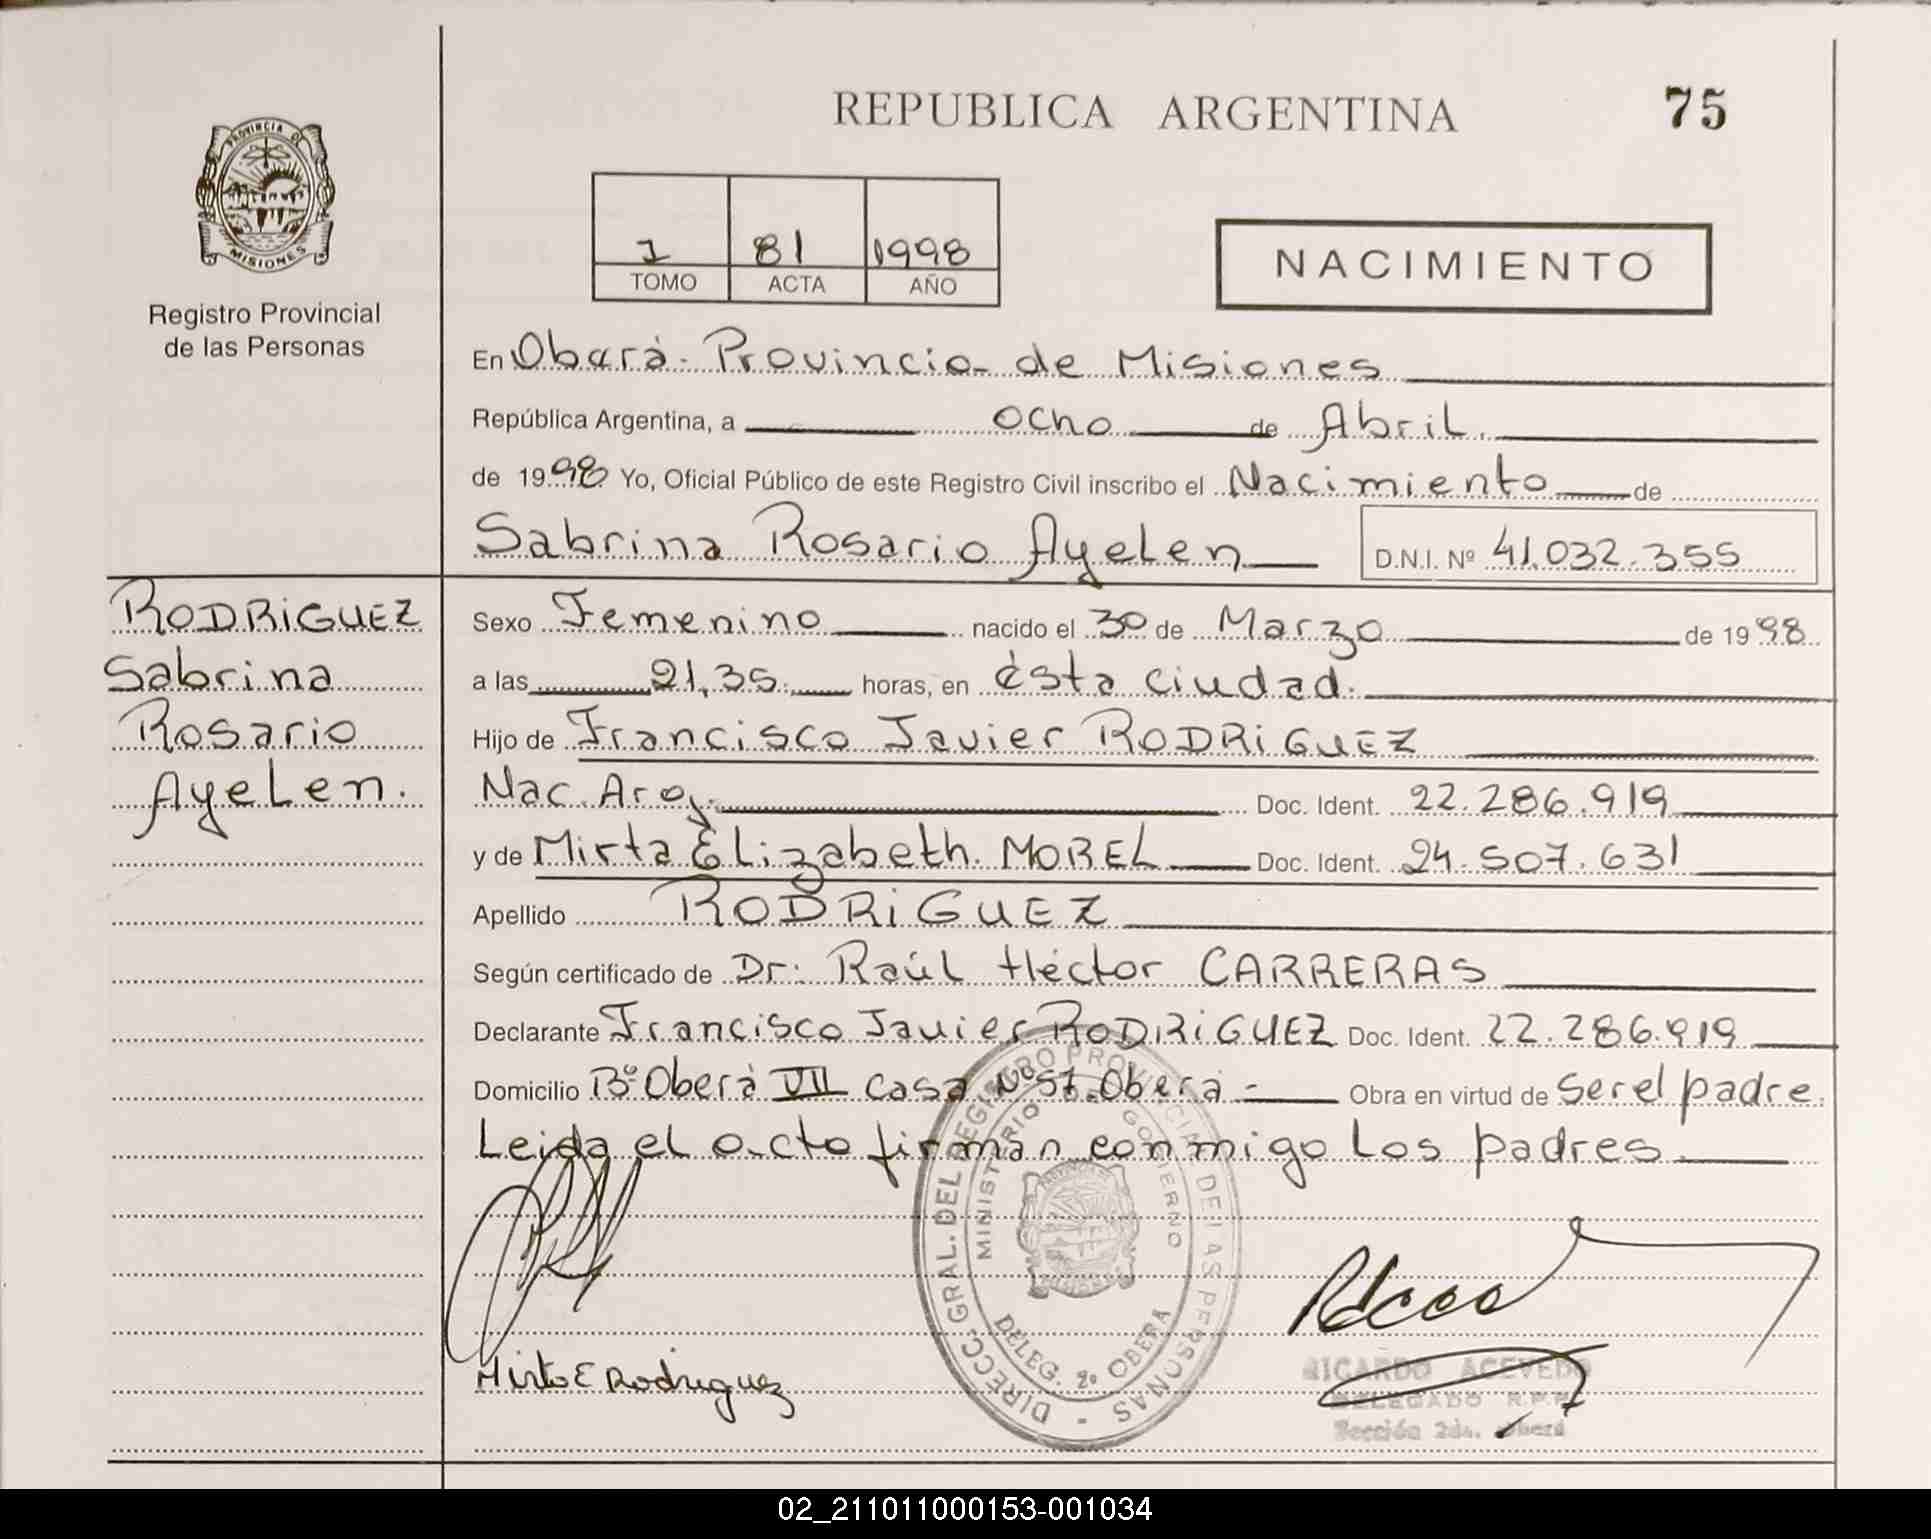 REPUBLICA ARGENTINA
75
PROVINCIA DE
MISIONES
Registro Provincial
de las Personas
1 81 1998
TOMO ACTA AÑO
NACIMIENTO
En Oberá - Provincia de Misiones
República Argentina, a ocho de Abril.
de 1998 Yo, Oficial Público de este Registro Civil inscribo el Nacimiento de
Sabrina Rosario Ayelen
D.N.I. Nº 41.032.355
RODRiGUEZ
Sabrina
Rosario
Ayelen.
Sexo Femenino nacido el 30 de Marzo de 1998
a las 21,35 horas, en ésta ciudad.
Hijo de Francisco Javier RODRiGUEZ
Nac. Arg. Doc. Ident. 22.286.919
y de Mirta Elizabeth MOREL Doc. Ident. 24.507.631
Apellido RODRiGUEZ
Según certificado de Dr: Raúl Héctor CARRERAS
Declarante Francisco Javier RODRiGUEZ Doc. Ident. 22.286.919
Domicilio Bº Oberá VII Casa Nº 57. Oberá - Obra en virtud de ser el padre.
Leida el acto firman conmigo los padres.
DIRECC. GRAL. DEL REGISTRO PROVINCIAL DE LAS PERSONAS -
MINISTERIO GOBIERNO
DELEG. 2º OBERA
Mirta E Rodriguez
RICARDO ACEVEDO
DELEGADO R.P.P.
Sección 2da. Oberá
02_211011000153-001034